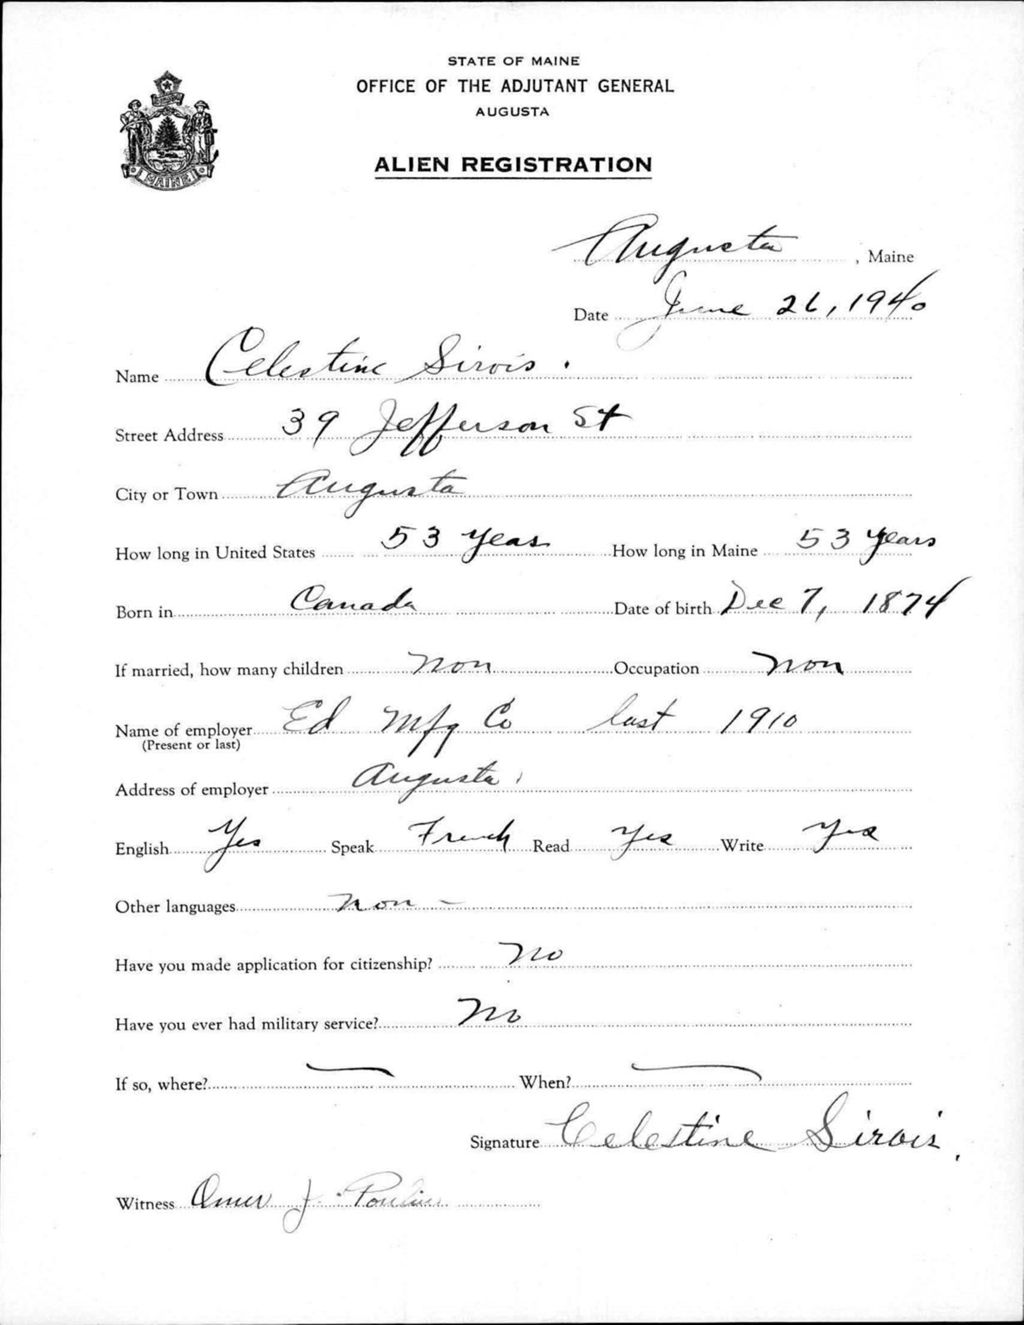 STATE OF MAINE
OFFICE OF THE ADJUTANT GENERAL
AUGUSTA
ALIEN REGISTRATION
MAINE
Augusta, Maine
Date June 26, 1940
Name Celestine Sirois.
Street Address 39 Jefferson St
City or Town Augusta
How long in United States 53 years How long in Maine 53 years
Born in Canada Date of birth Dec 7, 1874
If married, how many children non Occupation non
Name of employer Ed Mfg Co last 1910
(Present or last)
Address of employer Augusta
English Yes Speak French Read Yes Write Yes
Other languages non -
Have you made application for citizenship? No
Have you ever had military service? No
If so, where? — When? —
Signature Celestine Sirois.
Witness Omer J. Poulin